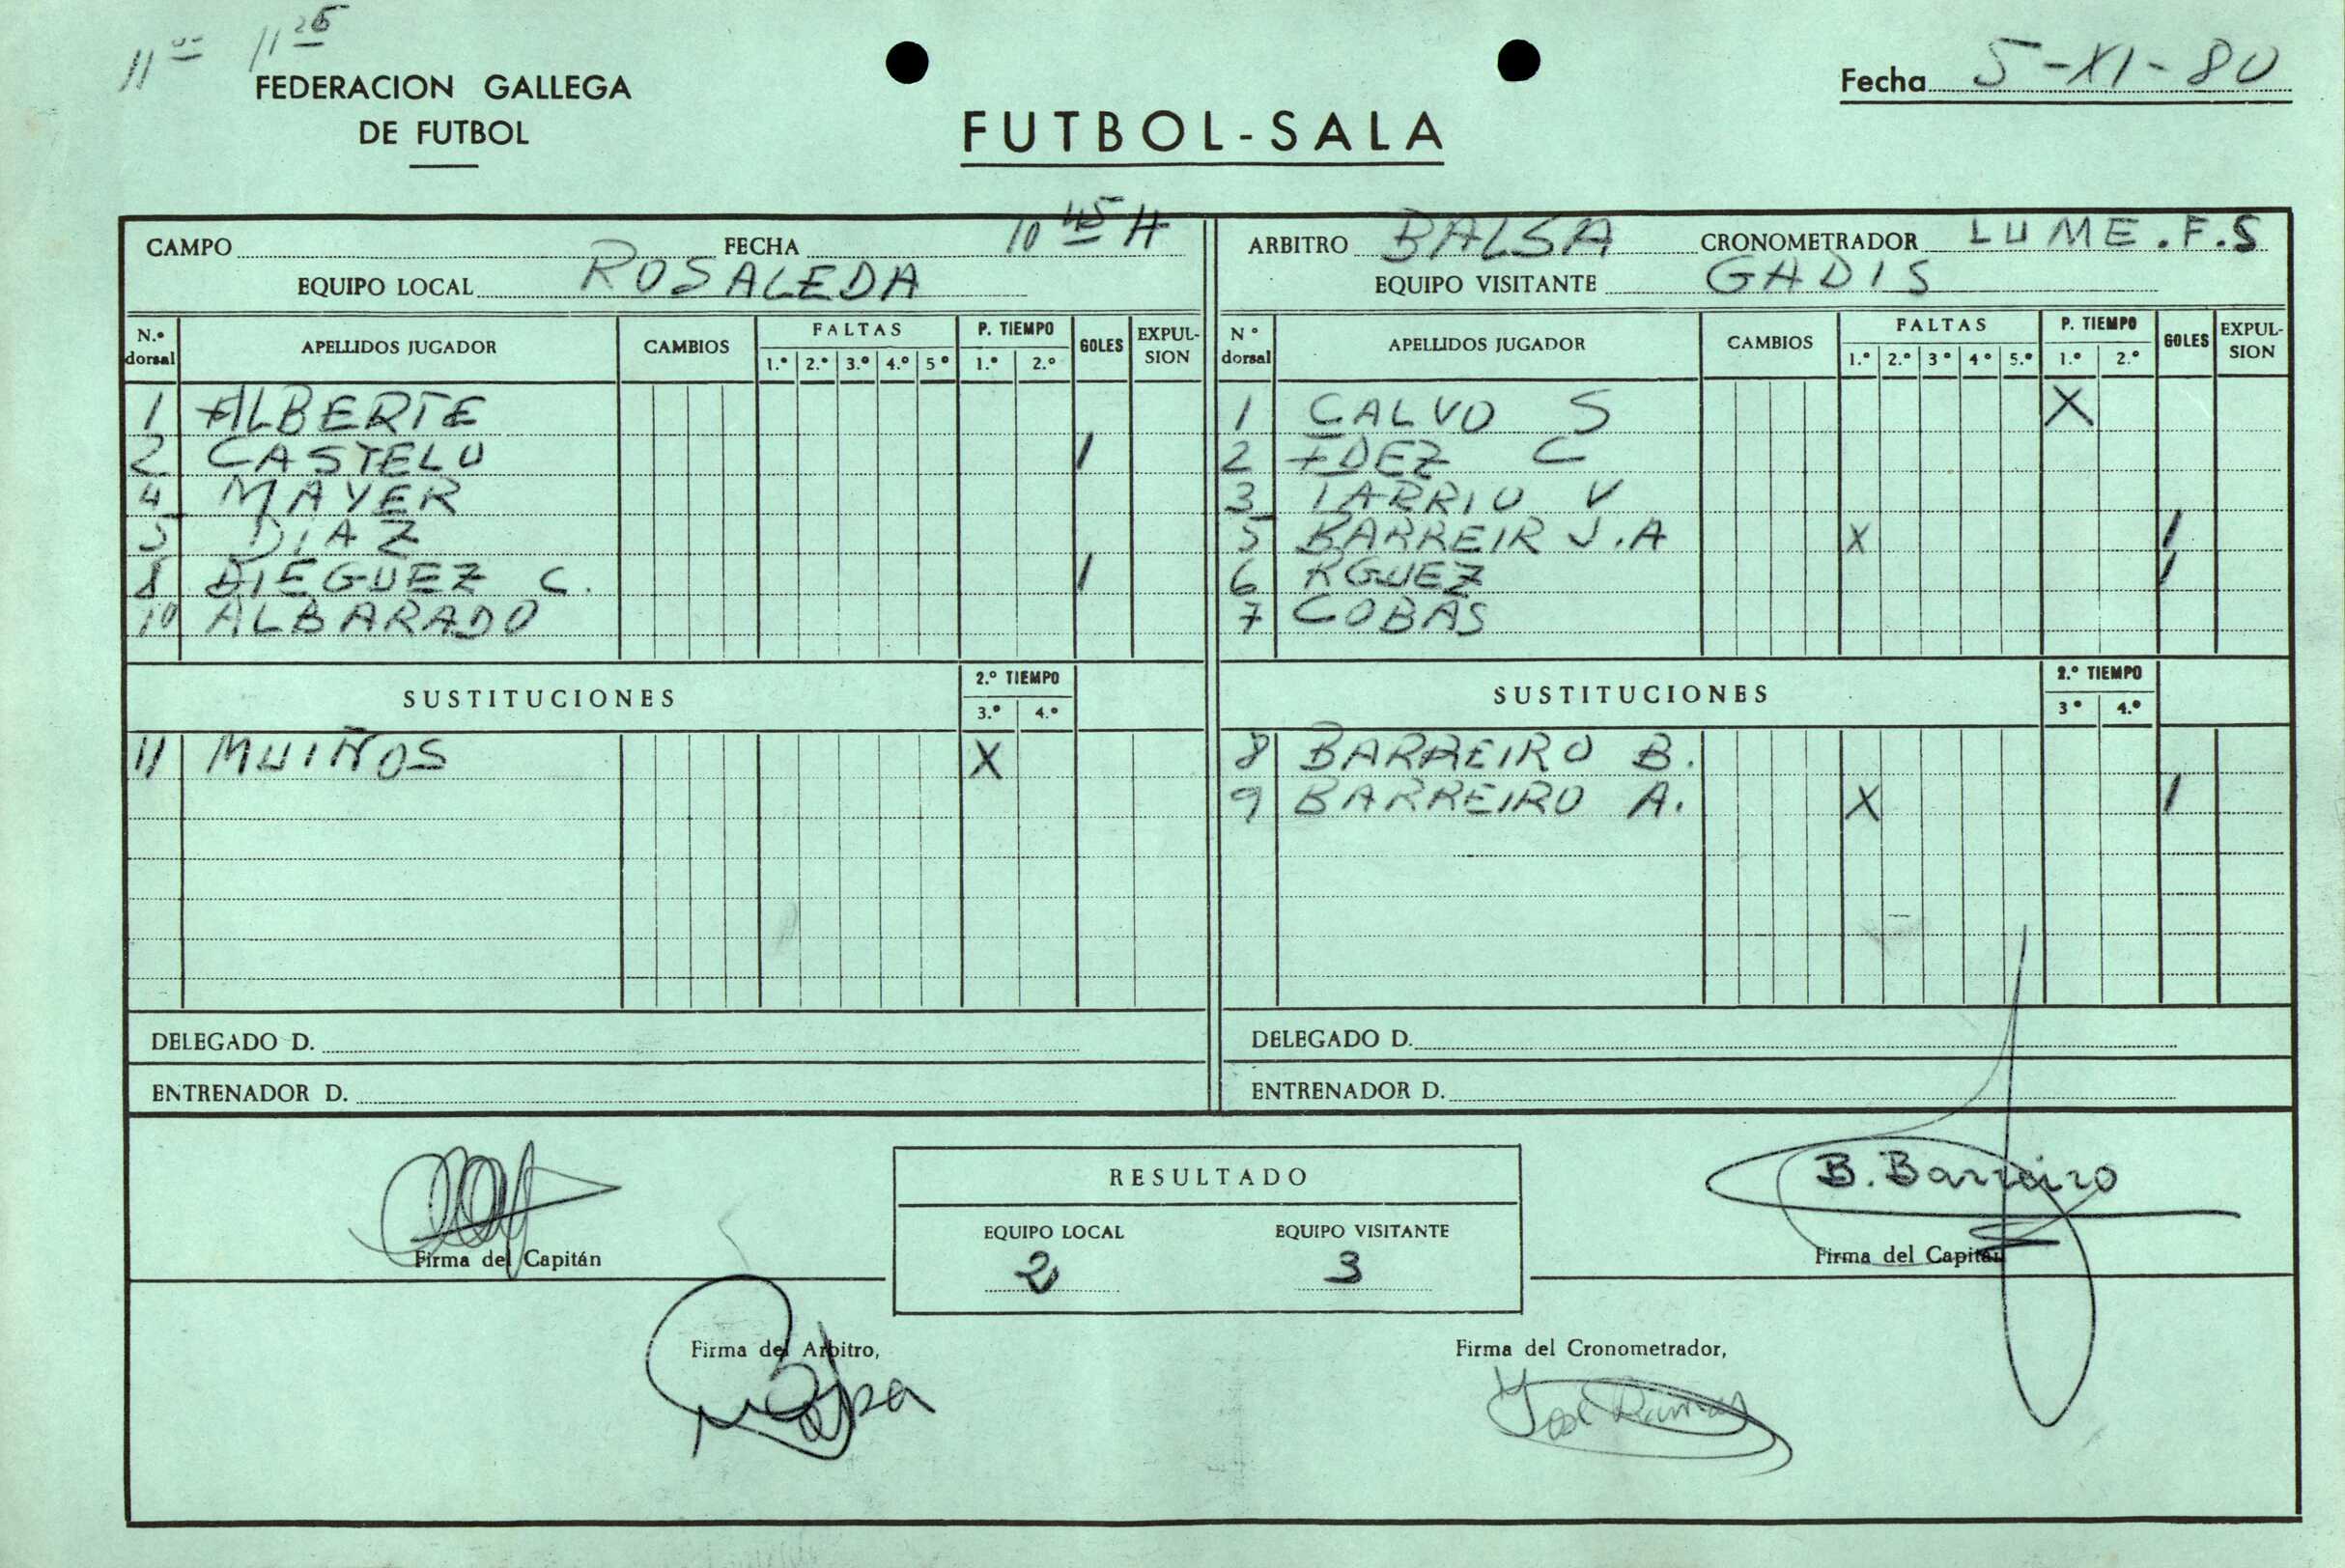 11 00 11 25
FEDERACION GALLEGA
DE FUTBOL
FUTBOL-SALA
Fecha 5-XI-80
CAMPO FECHA 10 45 H
EQUIPO LOCAL ROSALEDA
N.º dorsal APELLIDOS JUGADOR CAMBIOS FALTAS 1.º 2.º 3.º 4.º 5º P. TIEMPO 1.º 2.º GOLES EXPULSION
1 ALBERTE
2 CASTELO 1
4 MAYER
5 DIAZ
8 DIEGUEZ C. 1
10 ALBARADO
SUSTITUCIONES 2.º TIEMPO 3.º 4.º
11 MUIÑOS X
DELEGADO D.
ENTRENADOR D.
ARBITRO BALSA CRONOMETRADOR LUME.F.S
EQUIPO VISITANTE GADIS
Nº dorsal APELLIDOS JUGADOR CAMBIOS FALTAS 1.º 2.º 3º 4º 5.º P. TIEMPO 1.º 2.º GOLES EXPULSION
1 CALVO S X
2 FDEZ C
3 TARRIO V
5 BARREIR J.A X 1
6 RGUEZ 1
7 COBAS
SUSTITUCIONES 2.º TIEMPO 3º 4.º
8 BARREIRO B.
9 BARREIRO A. X 1
DELEGADO D.
ENTRENADOR D.
Firma del Capitán
RESULTADO
EQUIPO LOCAL EQUIPO VISITANTE
2 3
B. Barreiro
Firma del Capitán
Firma del Arbitro,
Balsa
Firma del Cronometrador,